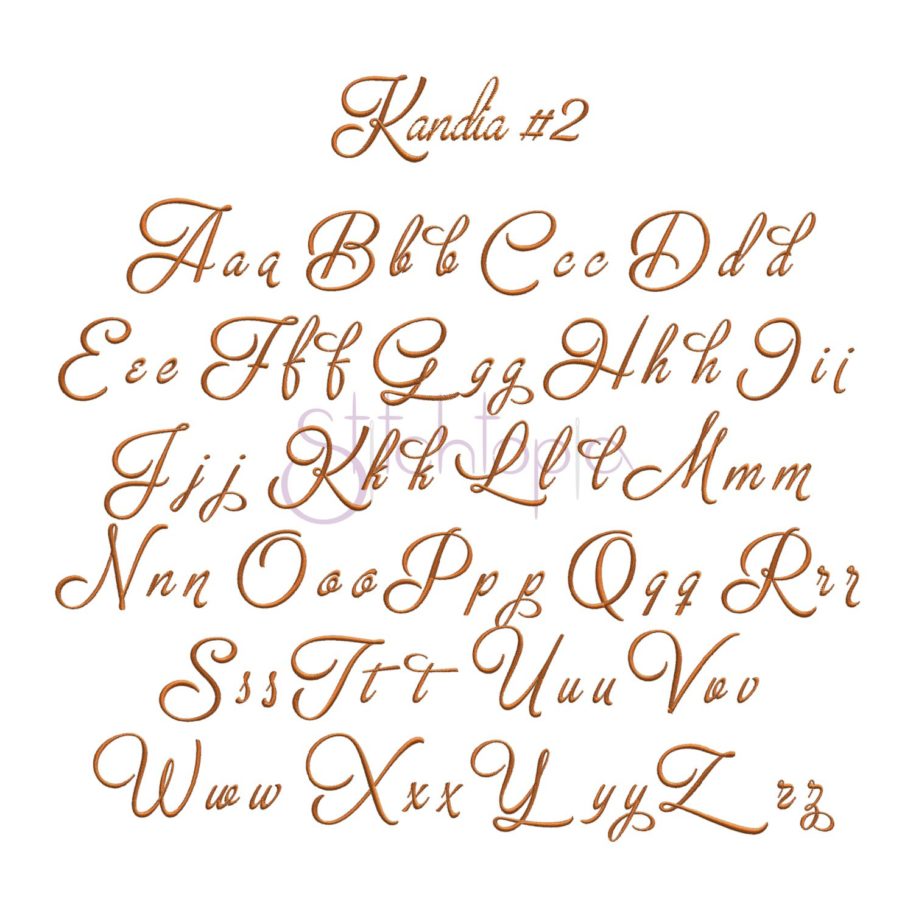 Kandia #2
Aaa Bbb Ccc Ddd
Eee Fff Ggg Hhh Iii
Stitchtopia
Jjj Kkk Lll Mmm
Nnn Ooo Ppp Qqq Rrr
Sss Ttt Uuu Vvv
Www Xxx Yyy Zzz